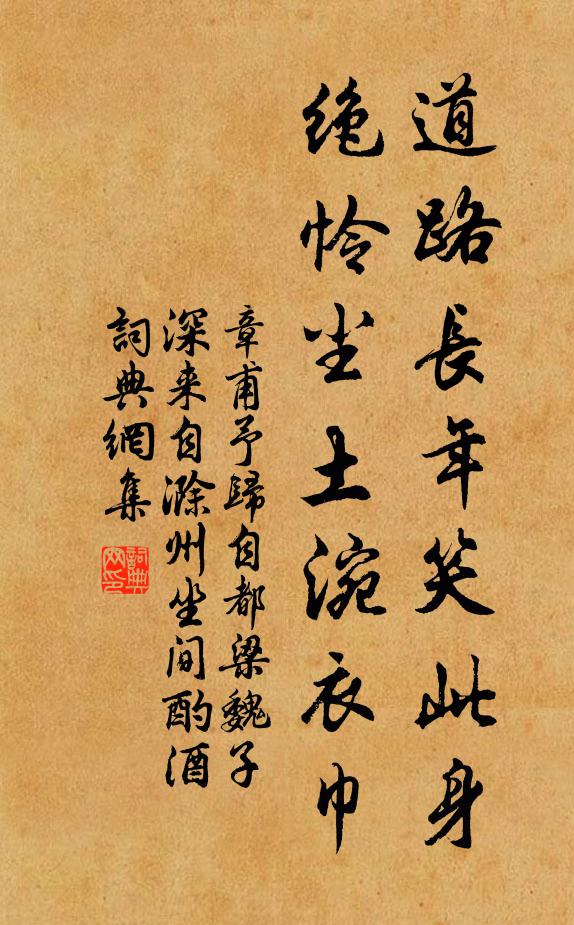 道路長年笑此身
絶怜尘土涴衣巾
章甫予歸自都梁魏子
深来自滁州坐间酌酒
詞典網集
詞典
网印